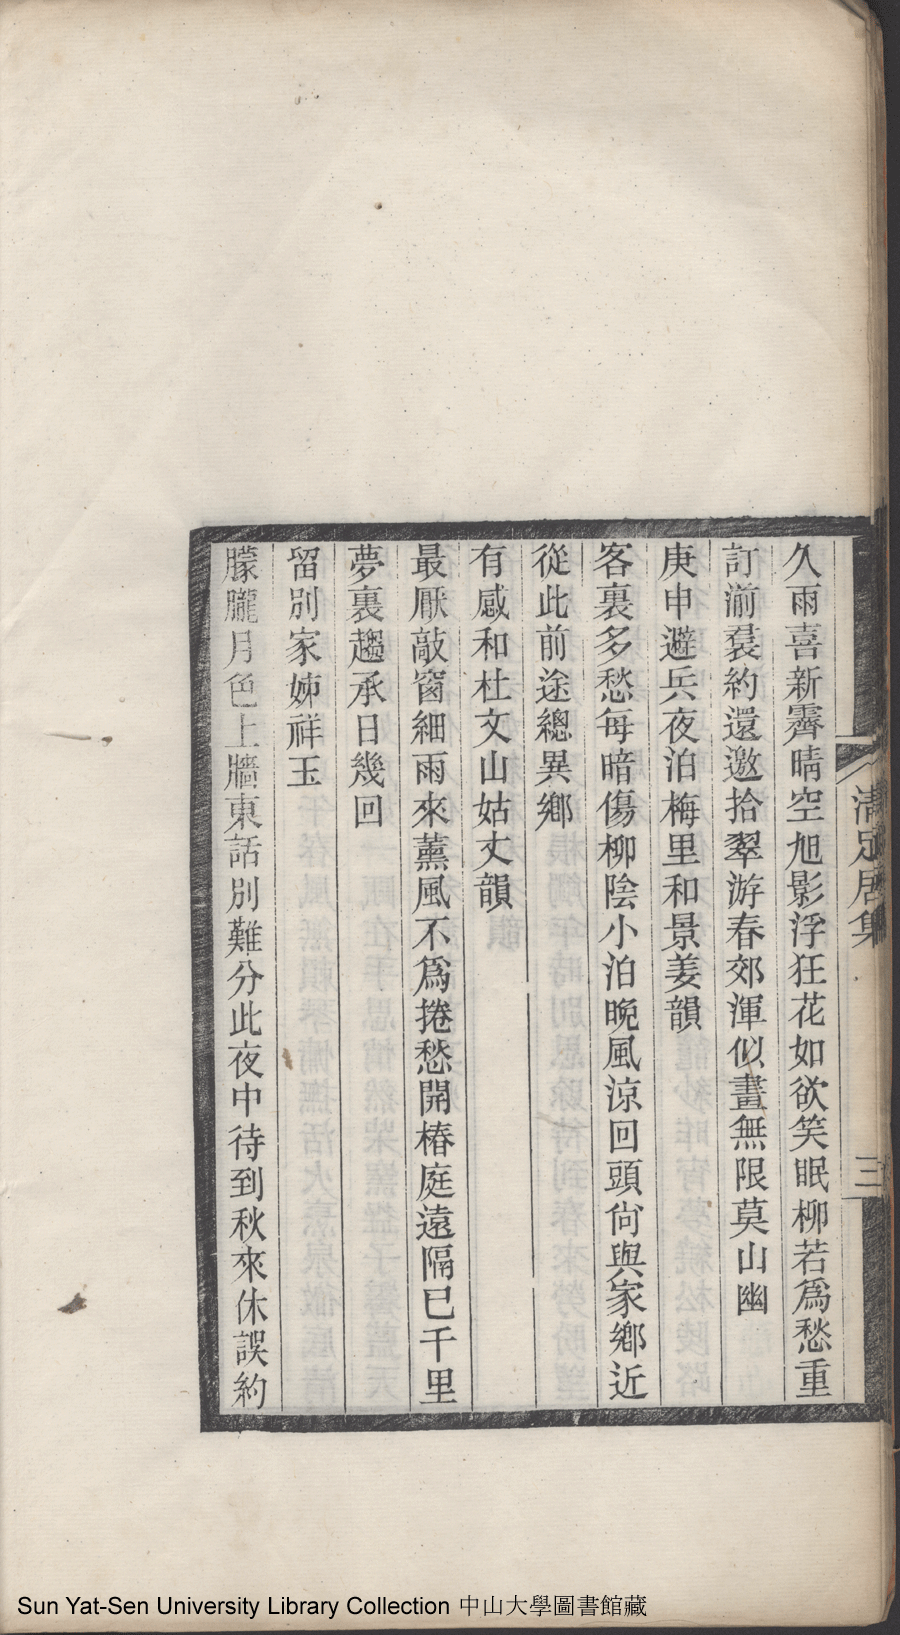 清足居集
三
久雨喜新霽晴空旭影浮狂花如欲笑眠柳若爲愁重
訂湔裠約還邀拾翠游春郊渾似畫無限莫山幽
庚申避兵夜泊梅里和景姜韻
客裏多愁每暗傷柳陰小泊晚風涼回頭尙與家鄉近
從此前途總異鄉
有感和杜文山姑丈韻
最厭敲窗細雨來薰風不爲捲愁開椿庭遠隔已千里
夢裏趨承日幾回
留別家姊祥玉
朦朧月色上牆東話別難分此夜中待到秋來休誤約
Sun Yat-Sen University Library Collection 中山大學圖書館藏